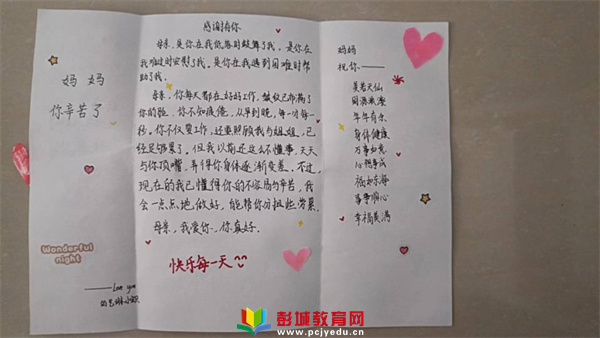 妈 妈
你辛苦了
Wonderful
night
——Love you
感谢有你
母亲,是你在我低落时鼓舞了我。是你在
我难过时安慰了我。是你在我遇到困难时帮
助了我。
母亲,你每天都在好好工作,皱纹已布满了
你的脸,你不知疲倦,从早到晚,每一分每一
秒。你不仅要工作,还要照顾我与姐姐,已
经足够累了,但我以前还这么不懂事,天天
与你顶嘴,弄得你身体逐渐变差,不过,
现在的我已懂得你的不容易与辛苦,我
会一点点地做好,能帮你分担些劳累。
母亲,我爱你,你真好。
快乐每一天
妈妈
祝你——
美若天仙
年年有余
身体健康
万事如意
心想事成
福如东海
事事顺心
幸福美满
彭城教育网
www.pcjyedu.cn